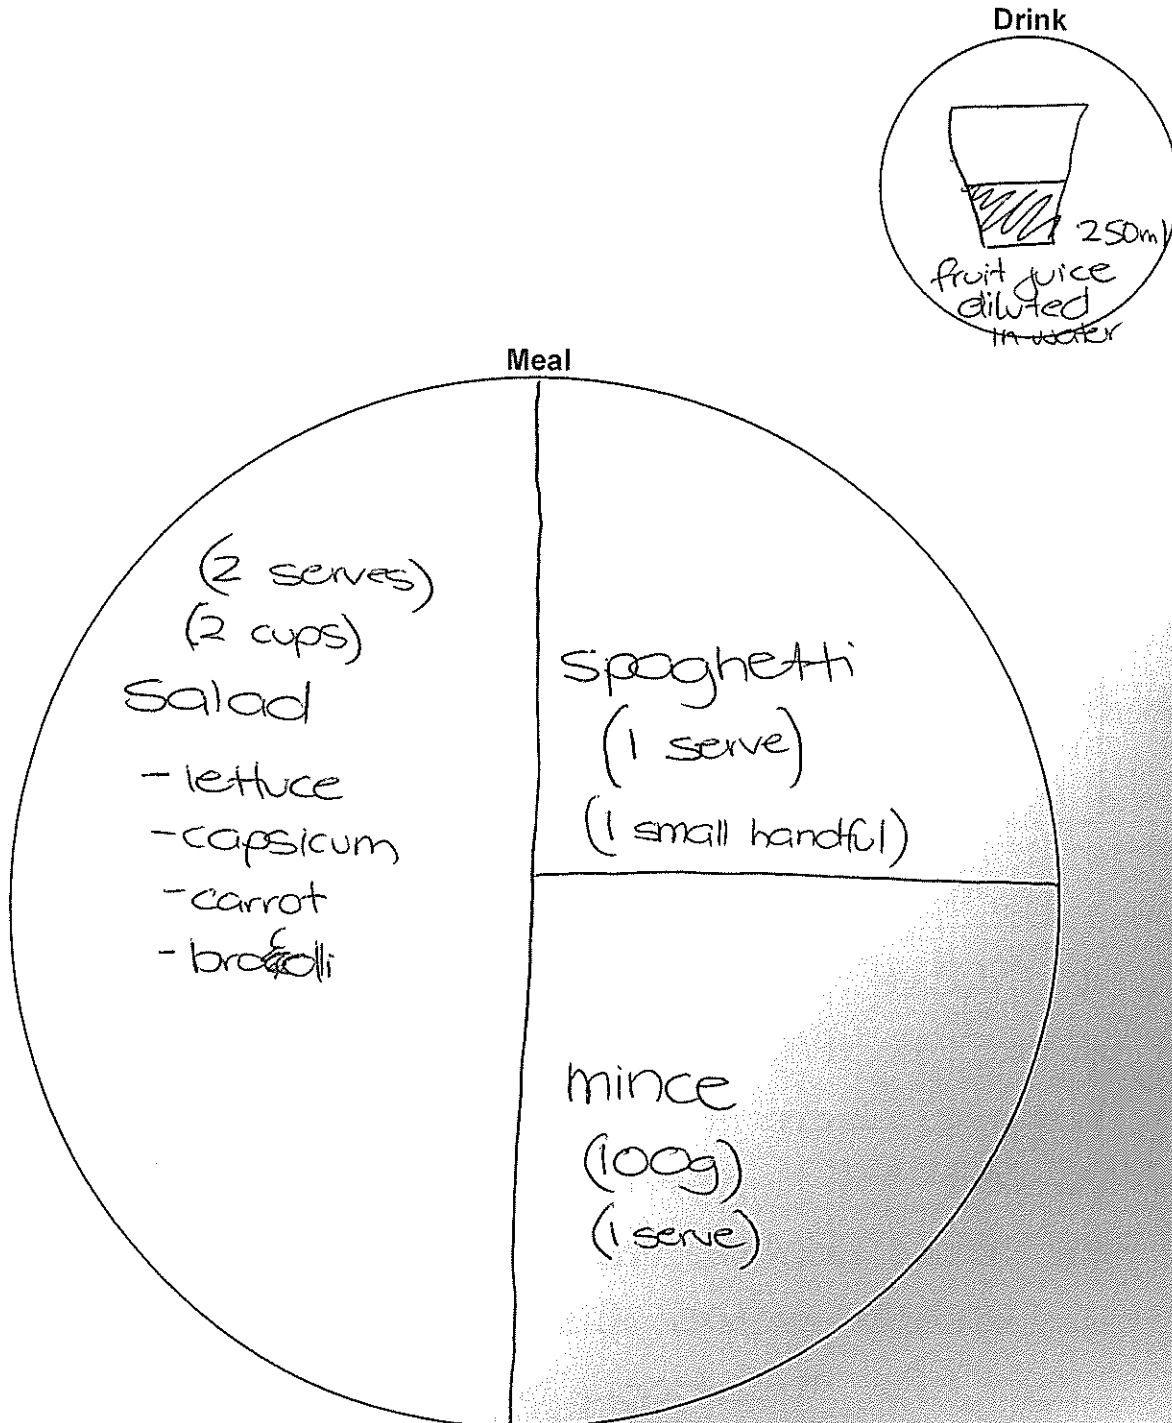 Drink
250ml
fruit juice
diluted
in water
Meal
(2 serves)
(2 cups)
Salad
- lettuce
- capsicum
- carrot
- broccoli
Spaghetti
(1 serve)
(1 small handful)
mince
(100g)
(1 serve)